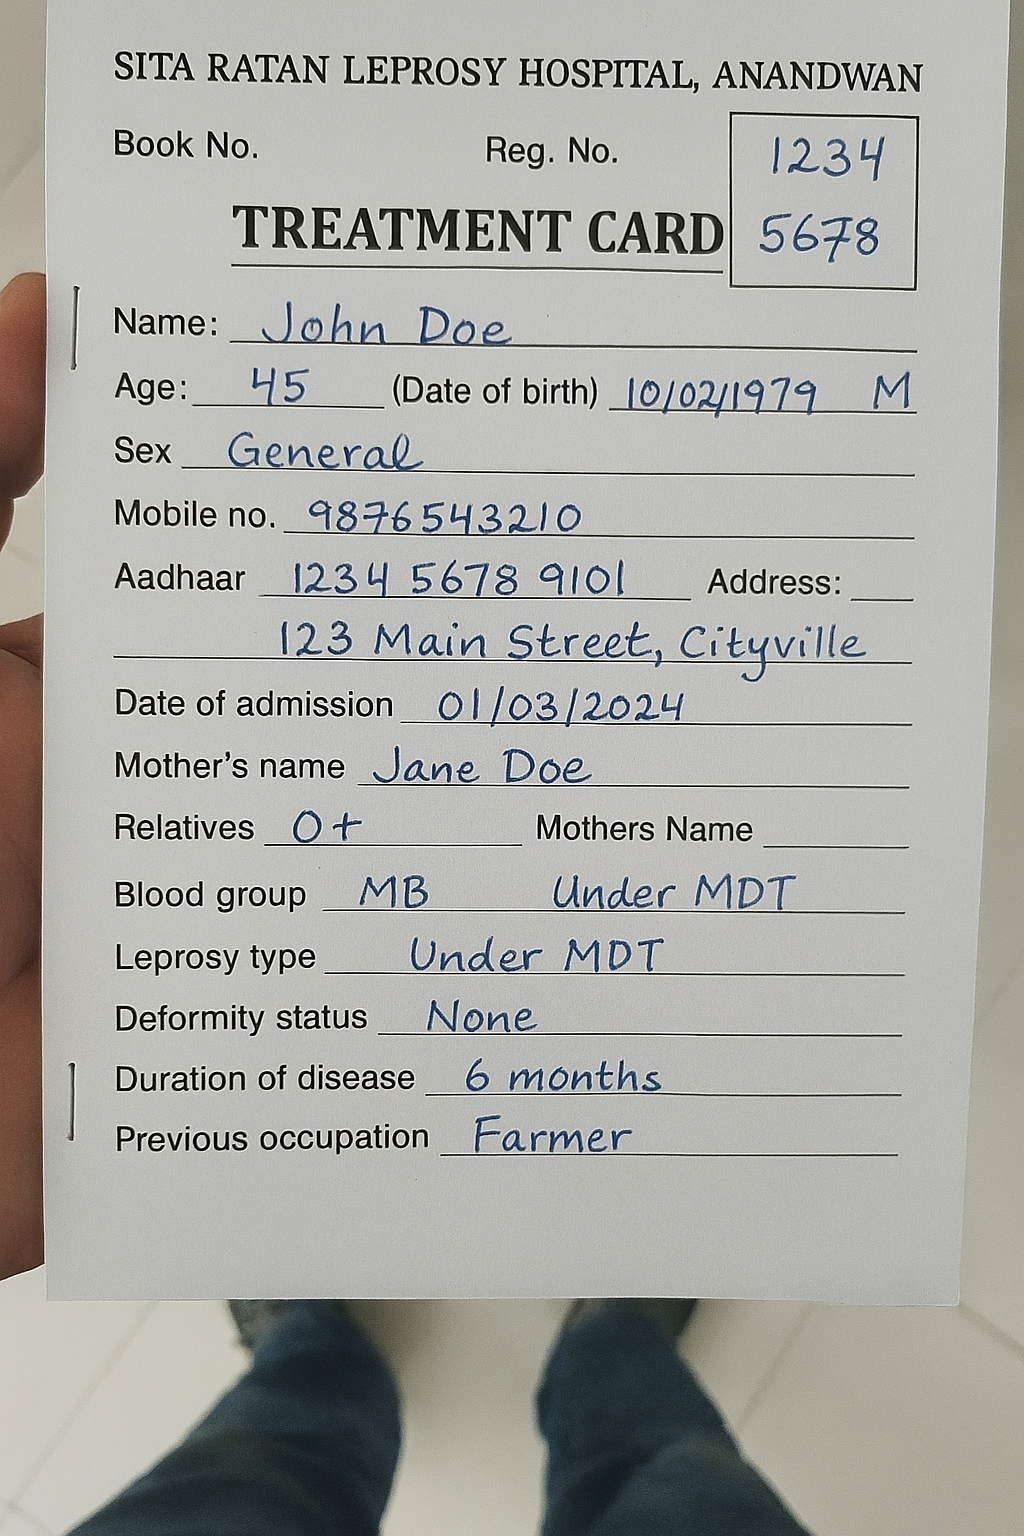 SITA RATAN LEPROSY HOSPITAL, ANANDWAN
Book No. Reg. No. 1234
5678
TREATMENT CARD
Name: John Doe
Age: 45 (Date of birth) 10/02/1979 M
Sex General
Mobile no. 9876543210
Aadhaar 1234 5678 9101 Address:
123 Main Street, Cityville
Date of admission 01/03/2024
Mother's name Jane Doe
Relatives O+ Mothers Name
Blood group MB Under MDT
Leprosy type Under MDT
Deformity status None
Duration of disease 6 months
Previous occupation Farmer